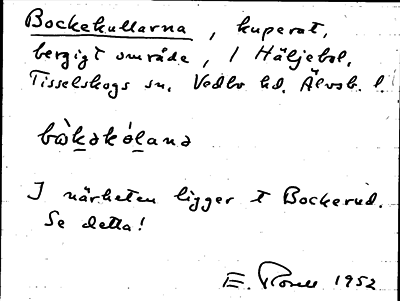 Bockekullarna, kuperat,
bergigt område, i Häljebol,
Tisselskogs sn. Vedbo hd. Älvsb. l.
bòkəkólanə
I närheten ligger t Bockerud.
Se detta!
E. Rosell 1952